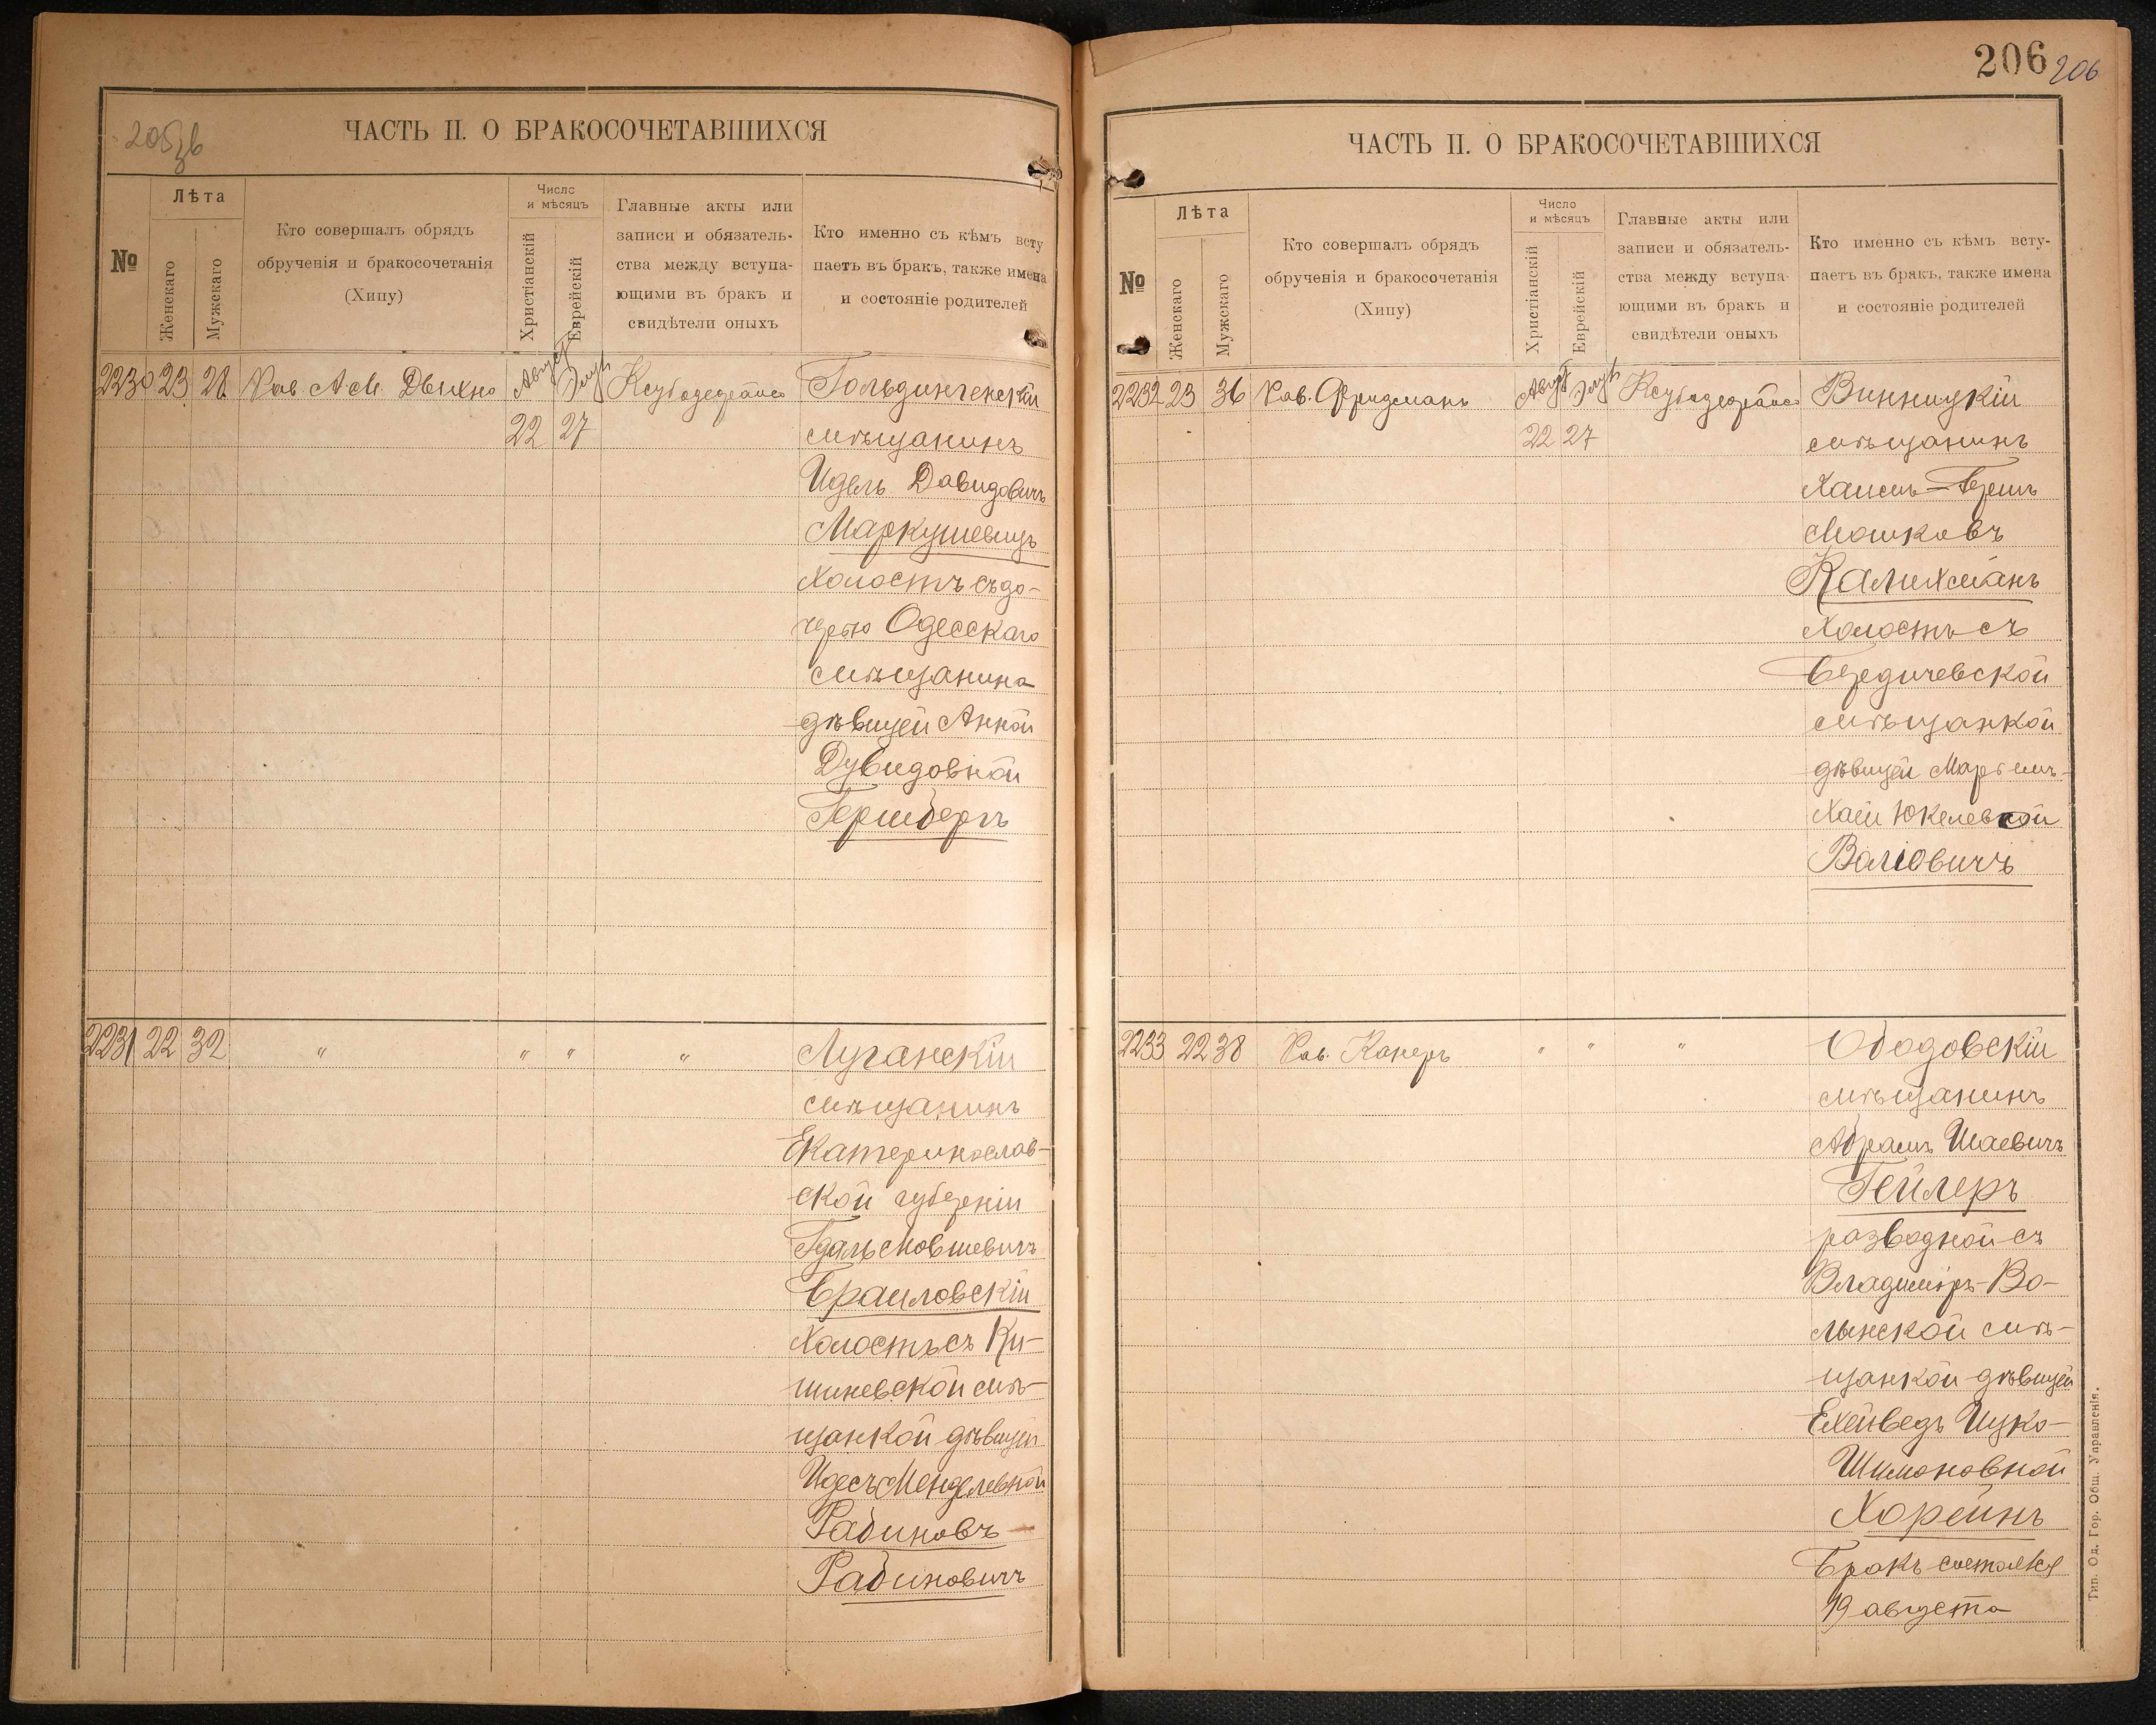 205зв
ЧАСТЬ II. О БРАКОСОЧЕТАВШИХСЯ
№
Лѣта
Женскаго
Мужскаго
Кто совершалъ обрядъ
обрученія и бракосочетанія
(Хипу)
Число
и мѣсяцъ
Христіанскій
Еврейскій
Главные акты или
записи и обязатель-
ства между вступа-
ющими въ бракъ и
свидѣтели оныхъ
Кто именно съ кѣмъ всту
паетъ въ бракъ, также имена
и состояніе родителей
2230 23 28 Рав. А. М. Двихно Август Элул Гольдингенскій
22 27 мѣщанинъ
Идель Давидовичъ
Маркушевицъ
холостъ съ до-
черью Одесскаго
мѣщанина
дѣвицей Анной
Дувидовной
Гершбергъ
2231 22 32 " " " " Луганскій
мѣщанинъ
Екатеринослав-
ской губерніи
Гдаль Мовшевичъ
Браиловскій
холостъ съ Ки-
шиневской мѣ-
щанкой дѣвицей
Идесъ Менделевной
Рабиновъ
Рабиновичъ
206 206
ЧАСТЬ II. О БРАКОСОЧЕТАВШИХСЯ
№
Лѣта
Женскаго
Мужскаго
Кто совершалъ обрядъ
обрученія и бракосочетанія
(Хипу)
Число
и мѣсяцъ
Христіанскій
Еврейскій
Главные акты или
записи и обязатель-
ства между вступа-
ющими въ бракъ и
свидѣтели оныхъ
Кто именно съ кѣмъ всту-
паетъ въ бракъ, также имена
и состояніе родителей
2232 23 36 Рав. Фридманъ Август Элул Винницкій
22 27 мѣщанинъ
Хаимъ-Берш
Мошковъ
Калихманъ
холостъ съ
Бердичевской
мѣщанкой
дѣвицей
Хаей Юкелевной
Валіовичъ
2233 22 38 Рав. Канеръ " " " Ободовскій
мѣщанинъ
Абрамъ Шаевичъ
Гейлеръ
разводной съ
Владиміръ-Во-
лынской мѣ-
щанкой дѣвицей
Ехейведъ Цуко-
Шимоновной
Хорейнъ
Бракъ состоялся
19 августа
Тип. Од. Гор. Общ. Управленія.